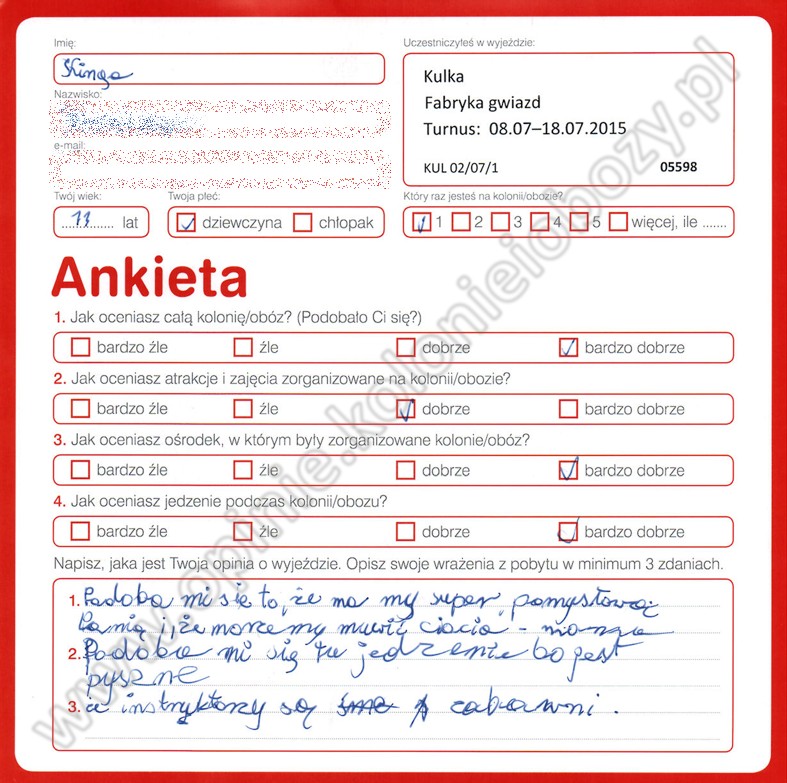 Imię:
Kinga
Uczestniczyłeś w wyjeździe:
Kulka
Fabryka gwiazd
Turnus: 08.07–18.07.2015
KUL 02/07/1 05598
Nazwisko:
e-mail:
Twój wiek: Twoja płeć: Który raz jesteś na kolonii/obozie?
11 lat dziewczyna chłopak 1 2 3 4 5 więcej, ile .......
Ankieta
1. Jak oceniasz całą kolonię/obóz? (Podobało Ci się?)
bardzo źle źle dobrze bardzo dobrze
2. Jak oceniasz atrakcje i zajęcia zorganizowane na kolonii/obozie?
bardzo źle źle dobrze bardzo dobrze
3. Jak oceniasz ośrodek, w którym były zorganizowane kolonie/obóz?
bardzo źle źle dobrze bardzo dobrze
4. Jak oceniasz jedzenie podczas kolonii/obozu?
bardzo źle źle dobrze bardzo dobrze
Napisz, jaka jest Twoja opinia o wyjeździe. Opisz swoje wrażenia z pobytu w minimum 3 zdaniach.
1. Podoba mi się to, że ma my super, pomysłową
Panią i że morzemy muwić ciocia -
2. Podoba mi się tu jedzenie bo jest
pyszne
3. że instryktorzy są zabawni .
www.opinie.kolonieiobozy.pl